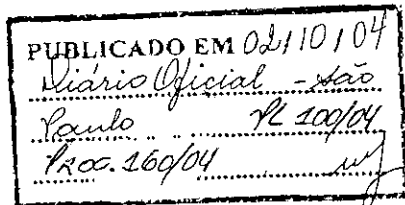 PUBLICADO EM 02/10/04
Diário Oficial - São
Paulo PL 100/04
Proc. 160/04